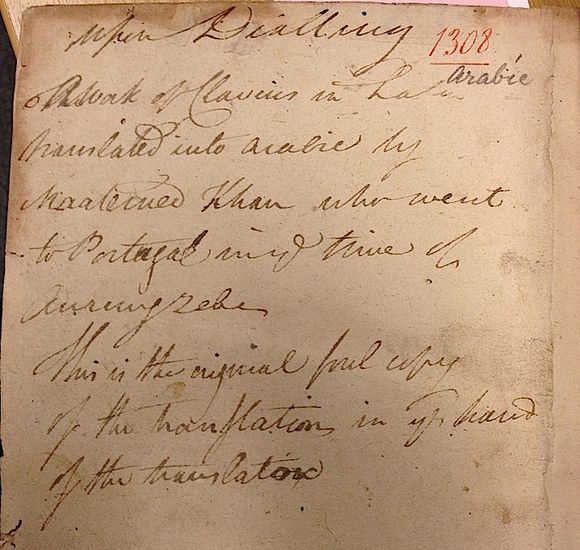 upon Dialling
1308
Arabic
A Work of Clavius in Latin
translated into Arabic by
Maatemed Khan who went
to Portugal in ye time of
Aurengzebe
This is the original foul copy
of the translation in ye hand
of the translator